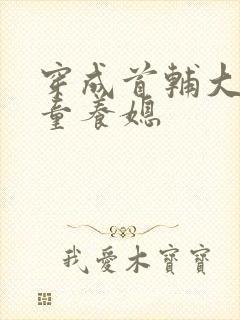 穿成首輔大
童養媳
我愛木寶寶